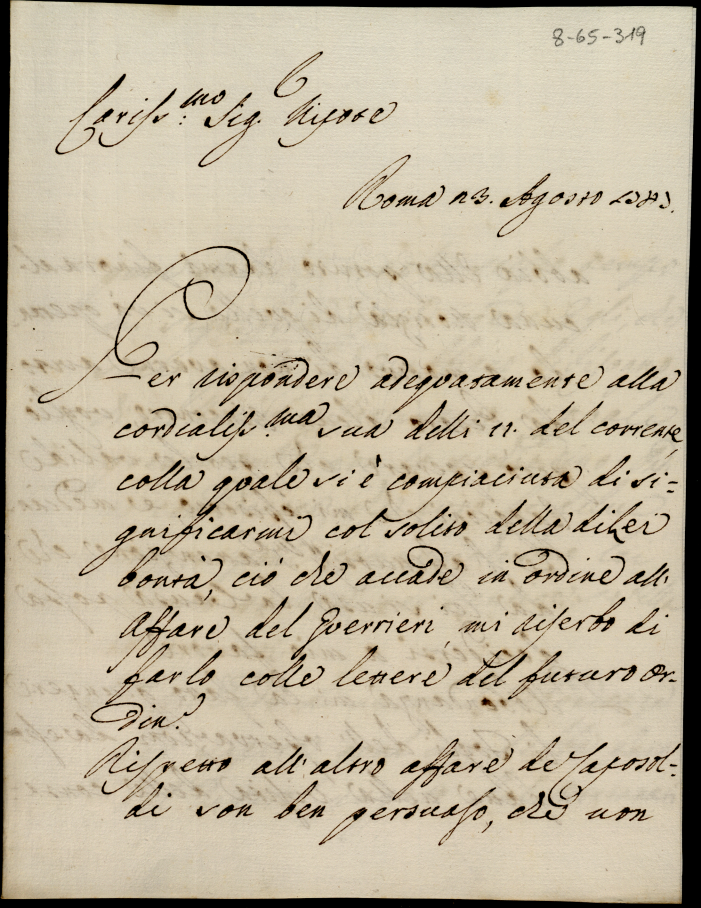 8-65-319
Cariss.mo Sig. Nipote
Roma 23. Agosto
Per rispondere adeguatamente alla
cordialiss.ma sua delli 11. del corrente,
colla quale si è compiaciuta di si=
gnificarmi col solito della di Lei
bontà, ciò che accade in ordine all'
affare del Guerrieri, mi riserbo di
farlo colle lettere del futuro or-
din.o
Rispetto all'altro affare de Caposol=
di son ben persuaso, che non